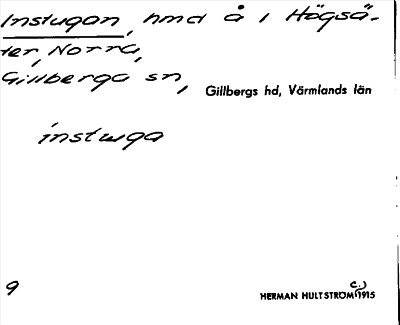 Instugan, hmd å 1 Högsä-
ter, Norra,
Gillberga sn,
Gillbergs hd, Värmlands län
instuga
9
HERMAN HULTSTRÖM c.) 1915